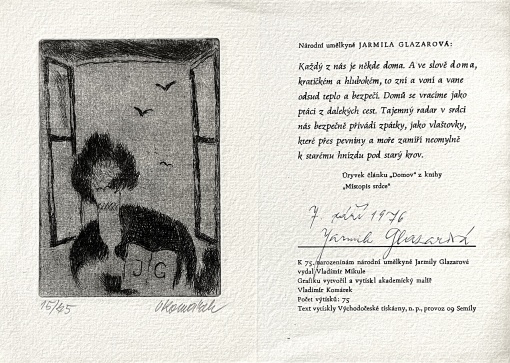 Národní umělkyně JARMILA GLAZAROVÁ:
Každý z nás je někde doma. A ve slově doma,
kratičkém a hlubokém, to zní a voní a vane
odsud teplo a bezpečí. Domů se vracíme jako
ptáci z dalekých cest. Tajemný radar v srdci
nás bezpečně přivádí zpátky, jako vlaštovky,
které přes pevniny a moře zamíří neomylně
k starému hnízdu pod starý krov.
Úryvek článku „Domov" z knihy
„Místopis srdce"
7. září 1976
Jarmila Glazarová
K 75. narozeninám národní umělkyně Jarmily Glazarové
vydal Vladimír Mikule
Grafiku vytvořil a vytiskl akademický malíř
Vladimír Komárek
Počet výtisků: 75
Text vytiskly Východočeské tiskárny, n. p., provoz 09 Semily
J G
15/45
VKomárek